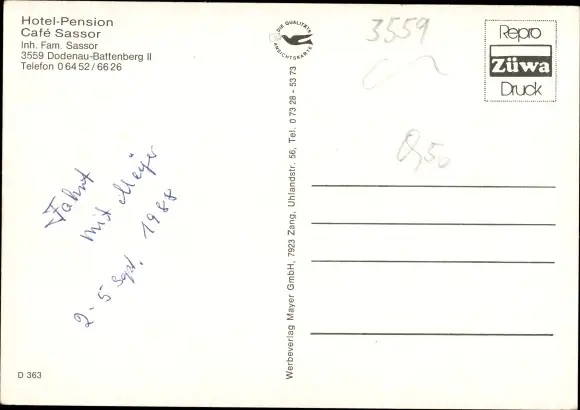 Hotel-Pension
Café Sassor
Inh. Fam. Sassor
3559 Dodenau-Battenberg II
Telefon 0 64 52 / 66 26
DIE QUALITÄTS
ANSICHTSKARTE
3559
Repro
Züwa
Druck
0,50
Fahrt
mit Meyer
2-5 Sept. 1988
Werbeverlag Mayer GmbH, 7923 Zang, Uhlandstr. 56, Tel. 0 73 28 - 53 73
D 363